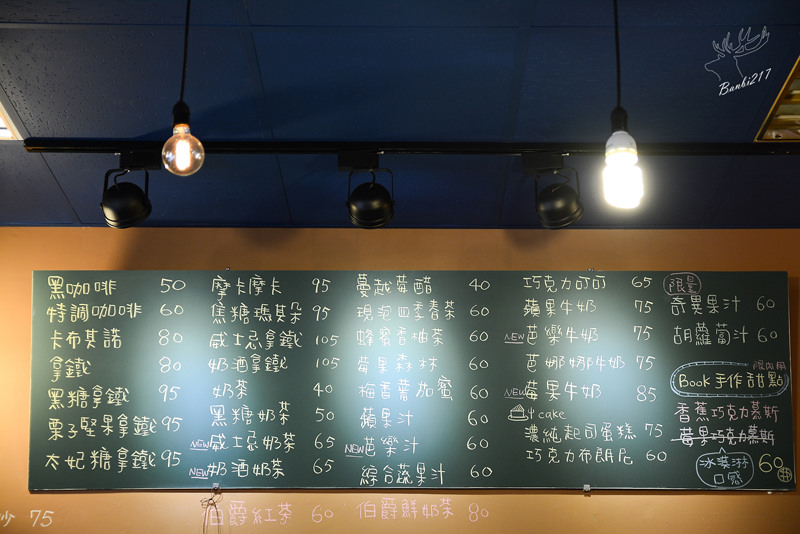 Banbi217
黑咖啡 50
特調咖啡 60
卡布其諾 80
拿鐵 80
黑糖拿鐵 95
栗子堅果拿鐵 95
太妃糖拿鐵 95
摩卡摩卡 95
焦糖瑪其朵 95
威士忌拿鐵 105
奶酒拿鐵 105
奶茶 40
黑糖奶茶 50
NEW 威士忌奶茶 65
NEW 奶酒奶茶 65
蔓越莓醋 40
現泡四季春茶 60
蜂蜜香柚茶 60
莓果森林 60
梅香蕃茄蜜 60
蘋果汁 60
NEW 芭樂汁 60
綜合蔬果汁 60
巧克力可可 65
蘋果牛奶 75
NEW 芭樂牛奶 75
芭娜娜牛奶 75
NEW 莓果牛奶 85
cake
濃純起司蛋糕 75
巧克力布朗尼 60
限量
奇異果汁 60
胡蘿蔔汁 60
限內用
Book 手作甜點
香蕉巧克力慕斯
莓果巧克力慕斯
冰淇淋
口感
60
75
伯爵紅茶 60 伯爵鮮奶茶 80